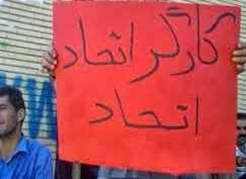 کارگر اتحاد
اتحاد